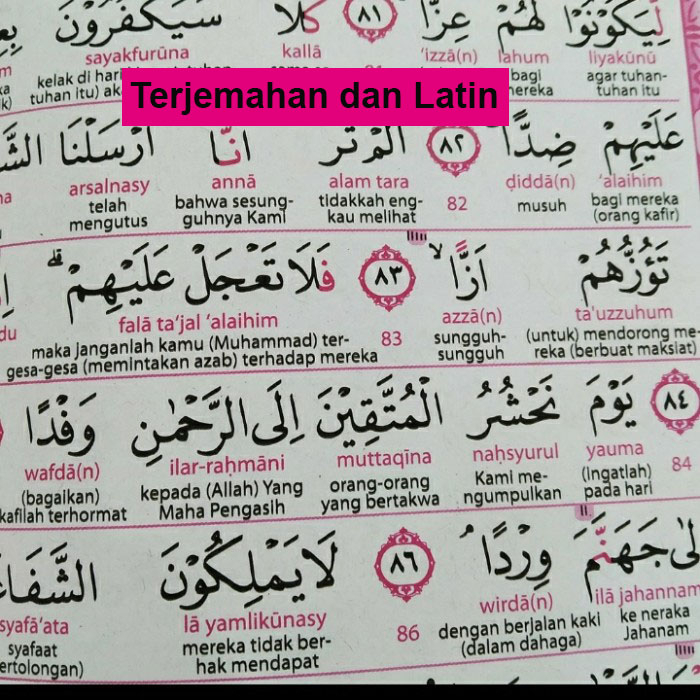 لِّيَكُوْنُوْا لَهُمْ عِزًّا ٨١ كَلَّا سَيَكْفُرُوْنَ
liyakūnū lahum 'izzā(n) kallā sayakfurūna
agar tuhan-tuhan itu bagi mereka kelak di hari
Terjemahan dan Latin
عَلَيْهِمْ ضِدًّا ٨٢ اَلَمْ تَرَ اَنَّا اَرْسَلْنَا
'alaihim ḍiddā(n) 82 alam tara annā arsalnasy
bagi mereka (orang kafir) musuh tidakkah engkau melihat bahwa sesungguhnya Kami telah mengutus
تَؤُزُّهُمْ اَزًّا ۙ ٨٣ فَلَا تَعْجَلْ عَلَيْهِمْ ۗ
ta'uzzuhum azzā(n) 83 falā ta'jal 'alaihim
(untuk) mendorong mereka (berbuat maksiat) sungguh-sungguh maka janganlah kamu (Muhammad) tergesa-gesa (memintakan azab) terhadap mereka
٨٤ يَوْمَ نَحْشُرُ الْمُتَّقِيْنَ اِلَى الرَّحْمٰنِ وَفْدًا
84 yauma naḥsyurul muttaqīna ilar-raḥmāni wafdā(n)
(Ingatlah) pada hari Kami mengumpulkan orang-orang yang bertakwa kepada (Allah) Yang Maha Pengasih (bagaikan) kafilah terhormat
اِلٰى جَهَنَّمَ وِرْدًا ۘ ٨٦ لَا يَمْلِكُوْنَ
ilā jahannam wirdā(n) 86 lā yamlikūnasy syafā'ata
ke neraka Jahanam dengan berjalan kaki (dalam dahaga) mereka tidak berhak mendapat syafaat